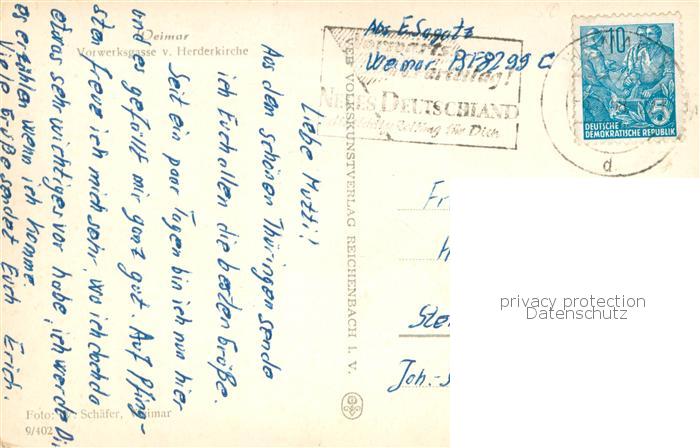 Weimar
Vorwerksgasse v. Herderkirche
Liebe Mutti!
Aus dem schönen Thüringen sende
ich Euch allen die besten Grüße.
Seit ein paar Tagen bin ich nun hier
und es gefällt mir ganz gut. Auf Pfing-
sten freue ich mich sehr, wo ich doch da
etwas sehr wichtiges vor habe, ich werde Di
es erzählen wenn ich komme.
Viele Grüße sendet Euch Erich.
Foto: Schäfer, Weimar
9/402
VOLKSKUNSTVERLAG REICHENBACH I. V.
Abs. E. Sagatz
Weimar PSF 8299 C
NEUES DEUTSCHLAND
Zeitung für Dich
10
5
DEUTSCHE
DEMOKRATISCHE REPUBLIK
d
Fr
H
Ste
Joh.-S
privacy protection
Datenschutz